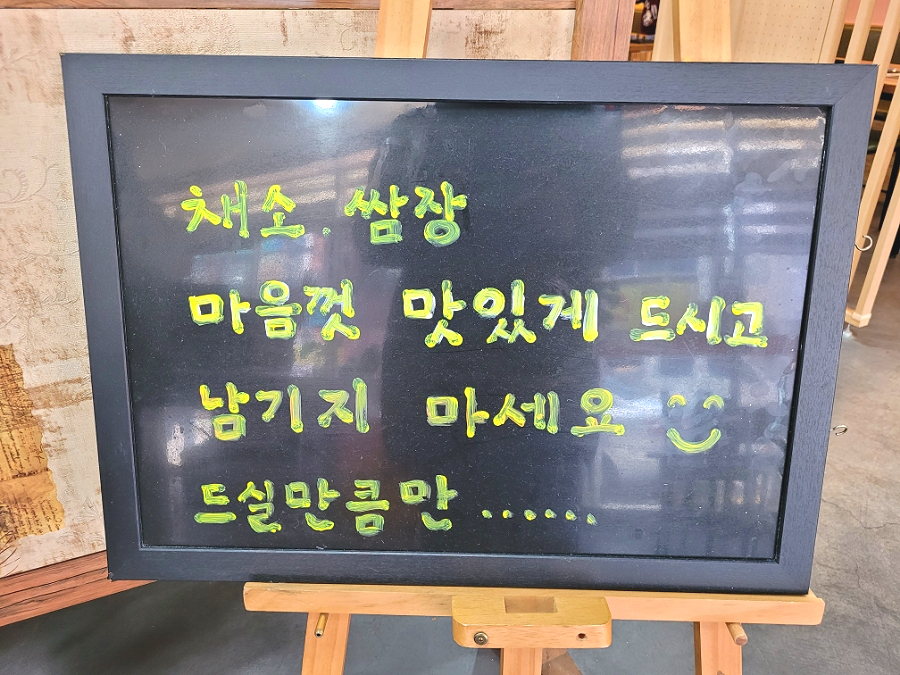 채소. 쌈장
마음껏 맛있게 드시고
남기지 마세요
드실만큼만 ......